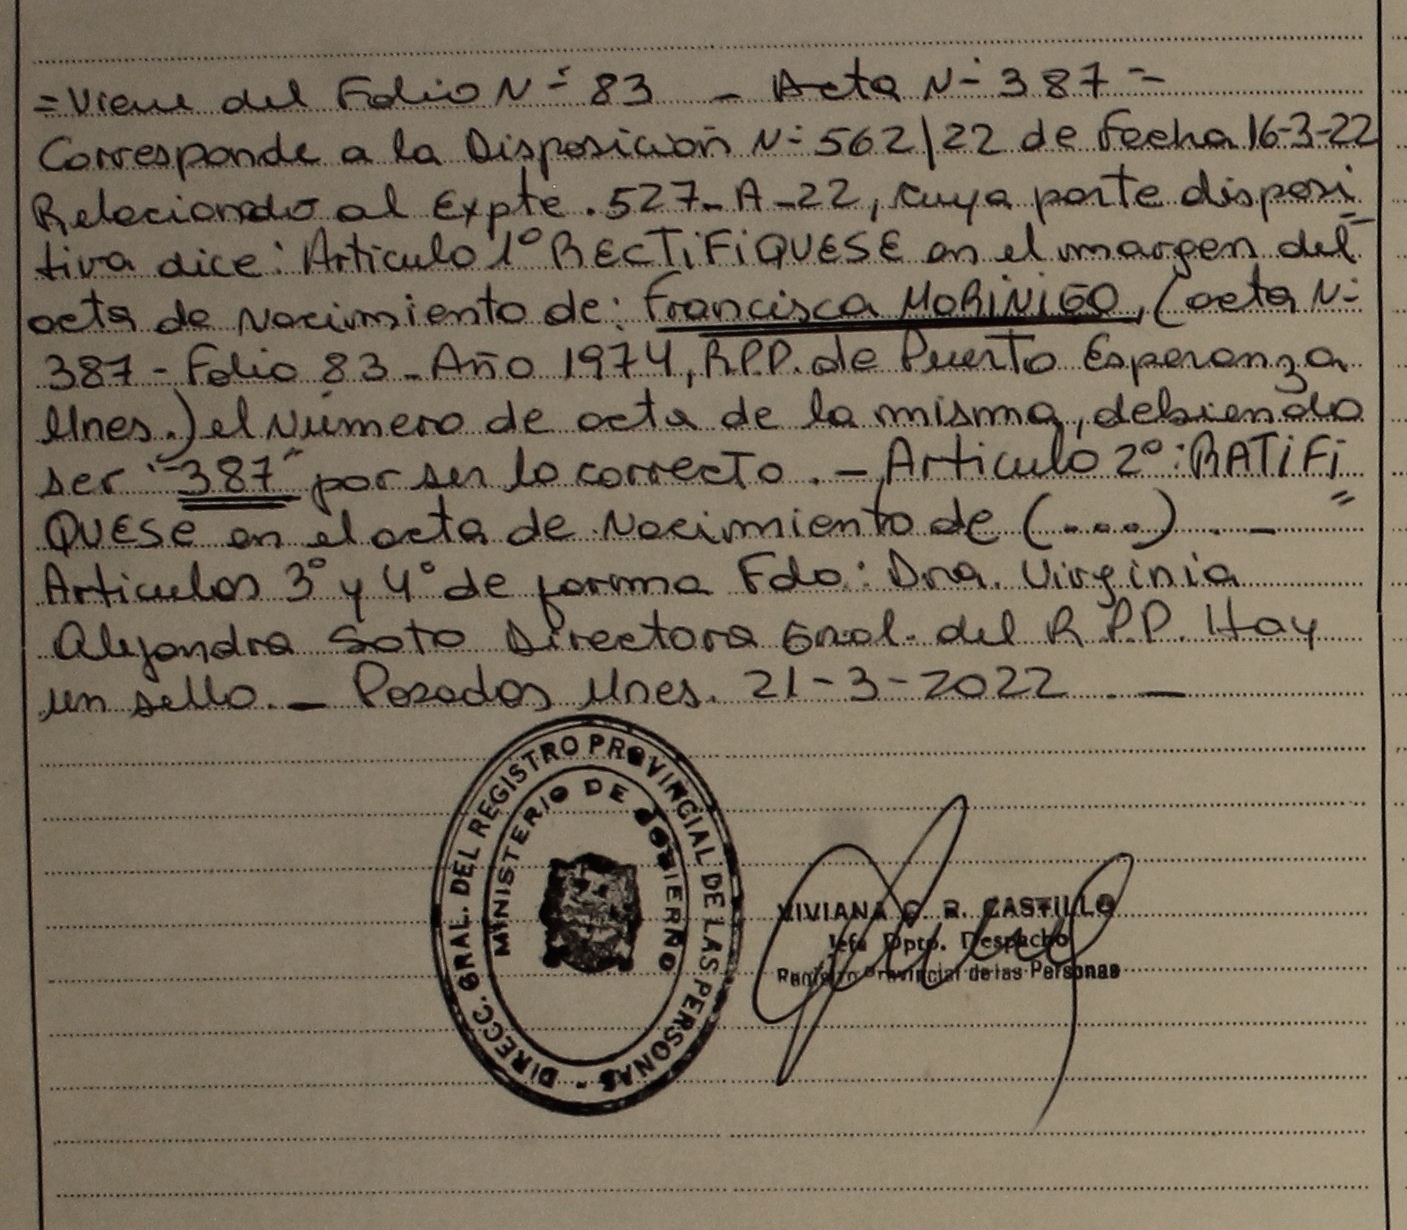 = Viene del Folio Nº 83 - Acta Nº 387 =
Corresponde a la Disposición Nº 562/22 de Fecha 16-3-22
Relacionado al Expte. 527-A-22, cuya parte disposi
tiva dice: Articulo 1º RECTIFIQUESE en el margen del
acta de Nacimiento de: Francisca MORINIGO, (acta Nº
387 - Folio 83 - Año 1974, RPP. de Puerto Esperanza
Mnes.) el Número de acta de la misma, debiendo
ser "387" por ser lo correcto. - Articulo 2º: RATIFI
QUESE en el acta de Nacimiento de (....) . -
Articulos 3º y 4º de forma Fdo: Dra. Virginia
Alejandra Soto Directora Gral. del R.P.P. Hay
un sello. - Posadas Mnes. 21-3-2022 . -
DIRECC. GRAL. DEL REGISTRO PROVINCIAL DE LAS PERSONAS -
MINISTERIO DE GOBIERNO
VIVIANA C. R. CASTILLO
Jefa Dpto. Despacho
Registro Provincial de las Personas